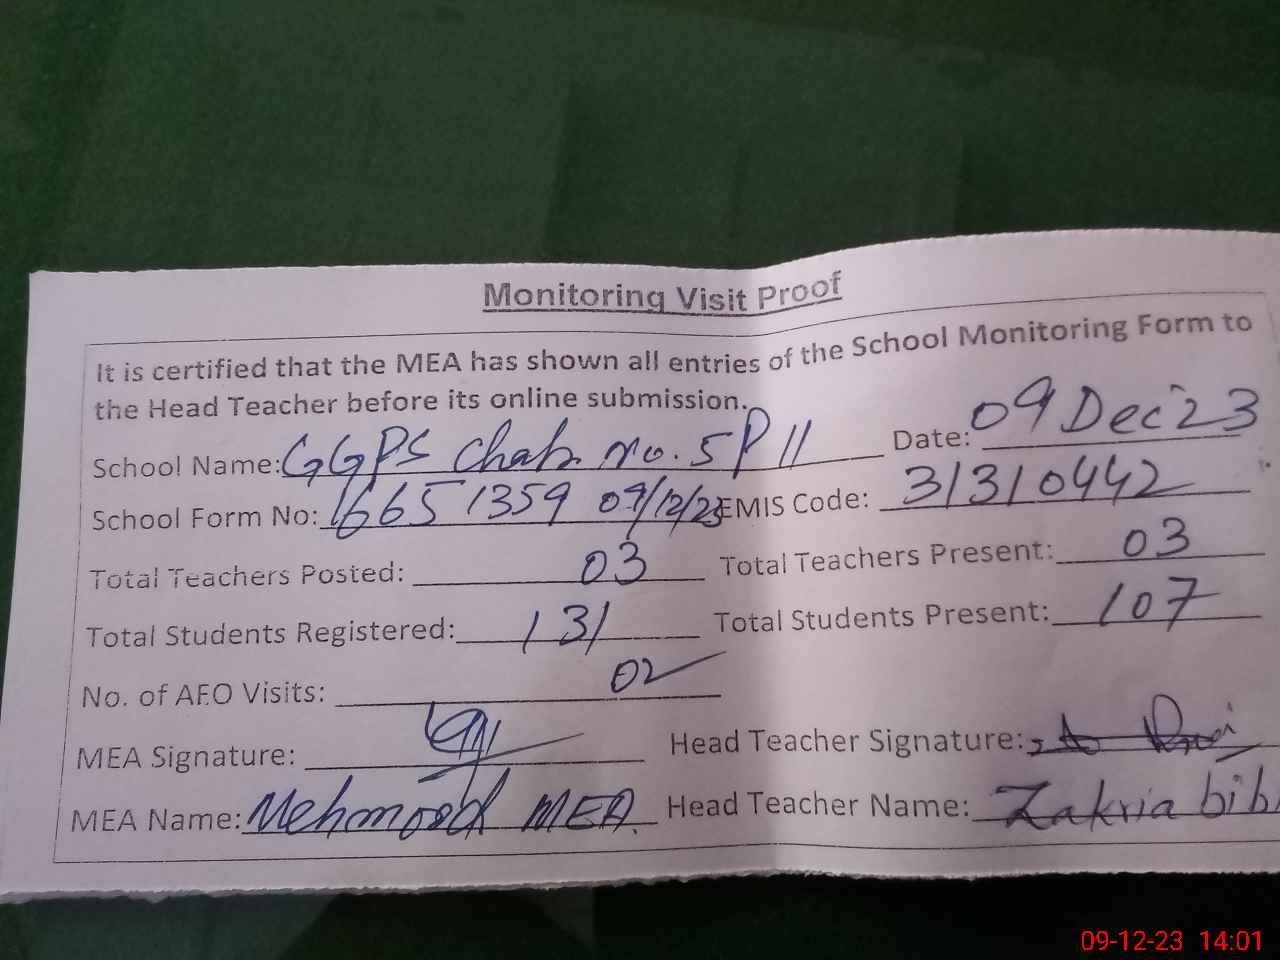 Monitoring Visit Proof
It is certified that the MEA has shown all entries of the School Monitoring Form to
the Head Teacher before its online submission.
School Name: GGPS Chak no. 5P 11 Date: 09 Dec'23
School Form No: 16651359 09/12/23 EMIS Code: 31310442
Total Teachers Posted: 03 Total Teachers Present: 03
Total Students Registered: 131 Total Students Present: 107
No. of AEO Visits: 02
MEA Signature: Head Teacher Signature:
MEA Name: Mehmood MEA. Head Teacher Name: Zakria bib
09-12-23 14:01